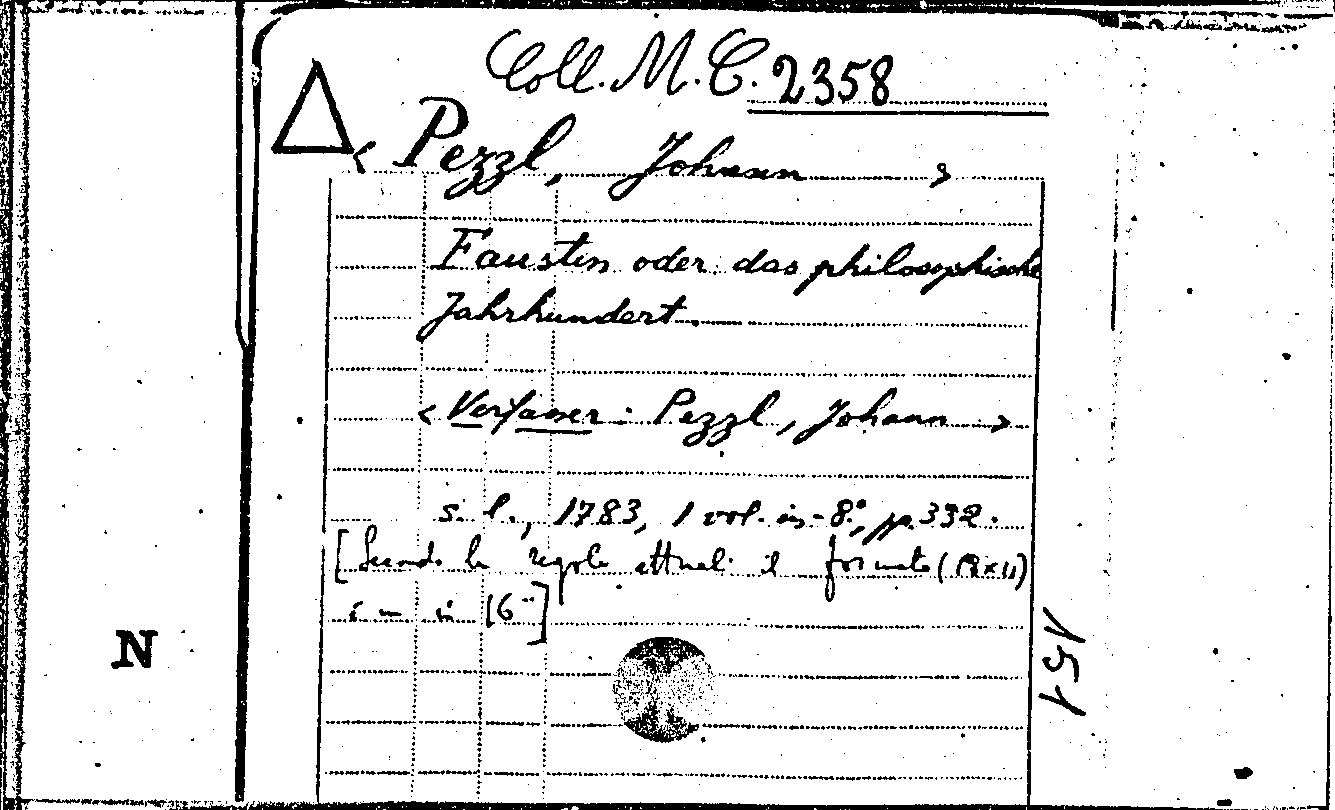 Coll. M. C. 2358
< Pezzl, Johann >
Faustin oder das philosophische
Jahrhundert.
< Verfasser : Pezzl, Johann >
s. l., 1783, 1 vol. in-8°, pp. 332.
[Secondo le regole attuali il formato (18x11)
è un in 16°]
N
151